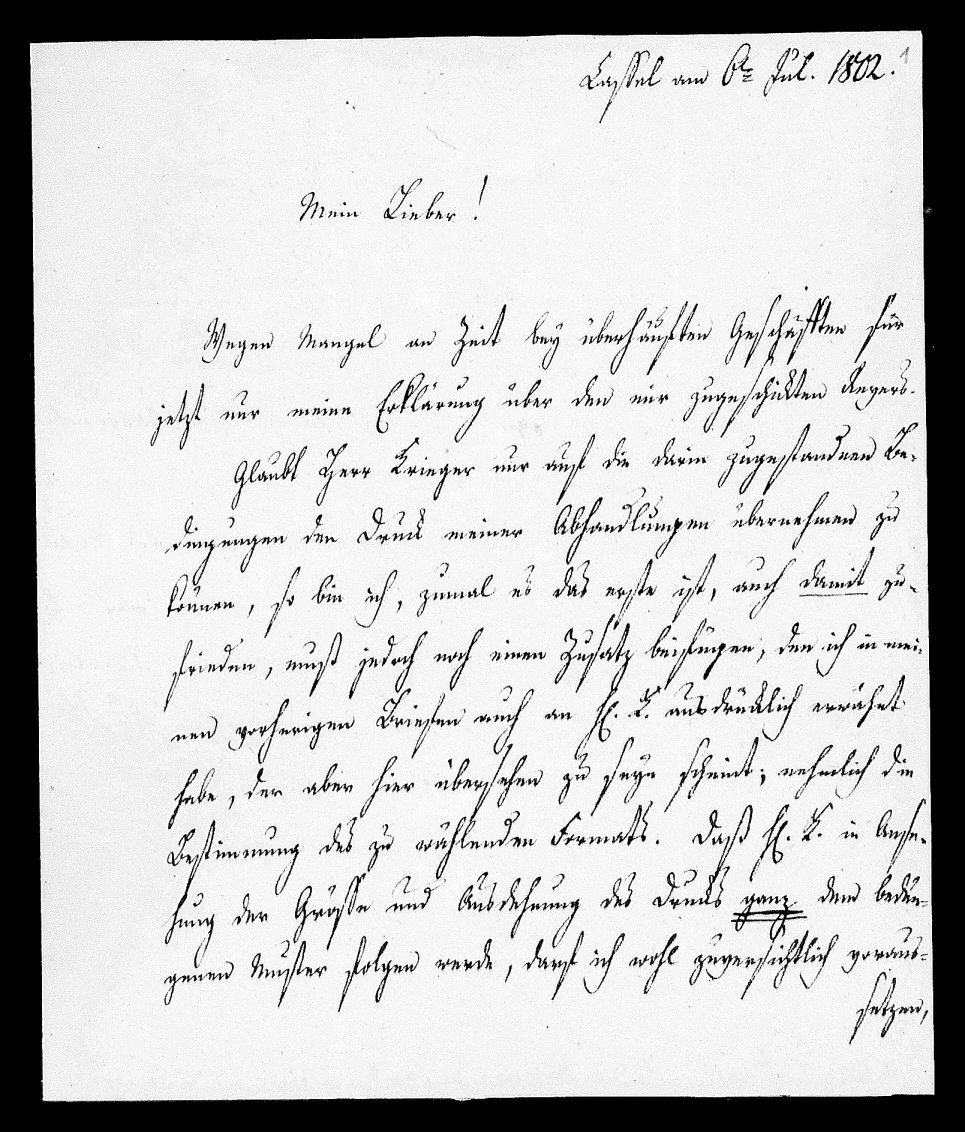 Cassel am 6ten Jul. 1802.
1
Mein Lieber!
Wegen Mangel an Zeit bey überhäuften Geschäfften für
jetzt nur meine Erklärung über den mir zugeschickten Revers.
Glaubt Herr Krieger nur auf die darin zugestandnen Be-
dingungen den Druck meiner Abhandlungen übernehmen zu
können, so bin ich, zumal es das erste ist, auch damit zu-
frieden, muß jedoch noch einen Zusatz beifügen, den ich in mei-
nen vorherigen Briefen auch an H. K. ausdrücklich erwähnt
habe, der aber hier übersehen zu seyn scheint; nehmlich die
Bestimmung des zu wählenden Formats. Daß H. K. in Anse-
hung der Grösse und Ausdehnung des Drucks ganz dem bedun-
genen Muster folgen werde, darf ich wohl zuversichtlich voraus-
setzen,